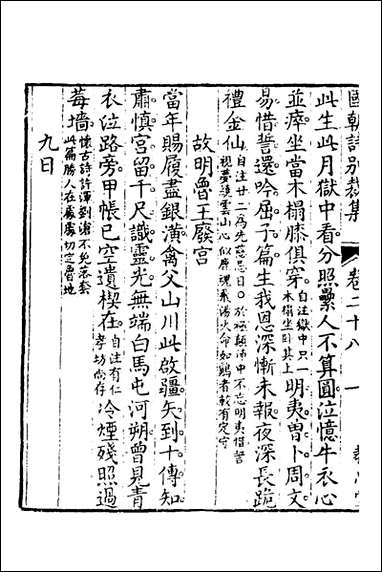 國朝詩別裁集 卷二十八 一
此生此月獄中看分照纍人不算圓泣憶牛衣心
並瘁坐當木榻膝俱穿自注獄中只一木榻坐卧其上明夷曾卜周文
易惜誓還吟屈子篇生我恩深慚未報夜深長跪
禮金仙自注廿二為先慈忌日
故明魯王廢宮
當年賜履盡銀潢禽父山川此啟疆矢到十傳知
肅慎宮留千尺識靈光無端白馬屯河朔曾見青
衣泣路旁甲帳已空遺楔在自注有仁孝坊尚存冷煙殘照過
莓墻懷古詩詩渾到滄不免落套此篇勝人在處處切定魯地
九日